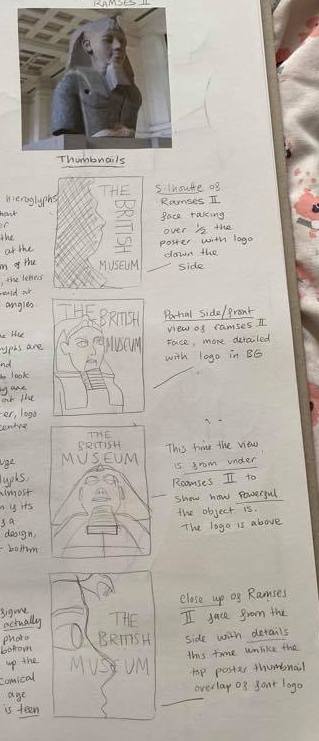 RAMSES II
Thumbnails
hieroglyphs
the
at the
of the
the letters
at
angles.
THE
BRITISH
MUSEUM
Silhoutte of
Ramses II
face taking
over 1/2 the
poster with logo
down the
side
the
are
look
are
out the
logo
centre
THE BRITISH
MUSEUM
Partial side/front
view of ramses II
face, more detailed
with logo in BG
almost
is its
a
design,
bottom
THE
BRITISH
MUSEUM
This time the view
is from under
Ramses II to
show how powerful
the object is.
The logo is above
actually
photo
bottom
up the
comical
age
is teen
THE
BRITISH
MUSEUM
Close up of Ramses
II face from the
side with details
this time unlike the
top poster thumbnail
overlap of font logo